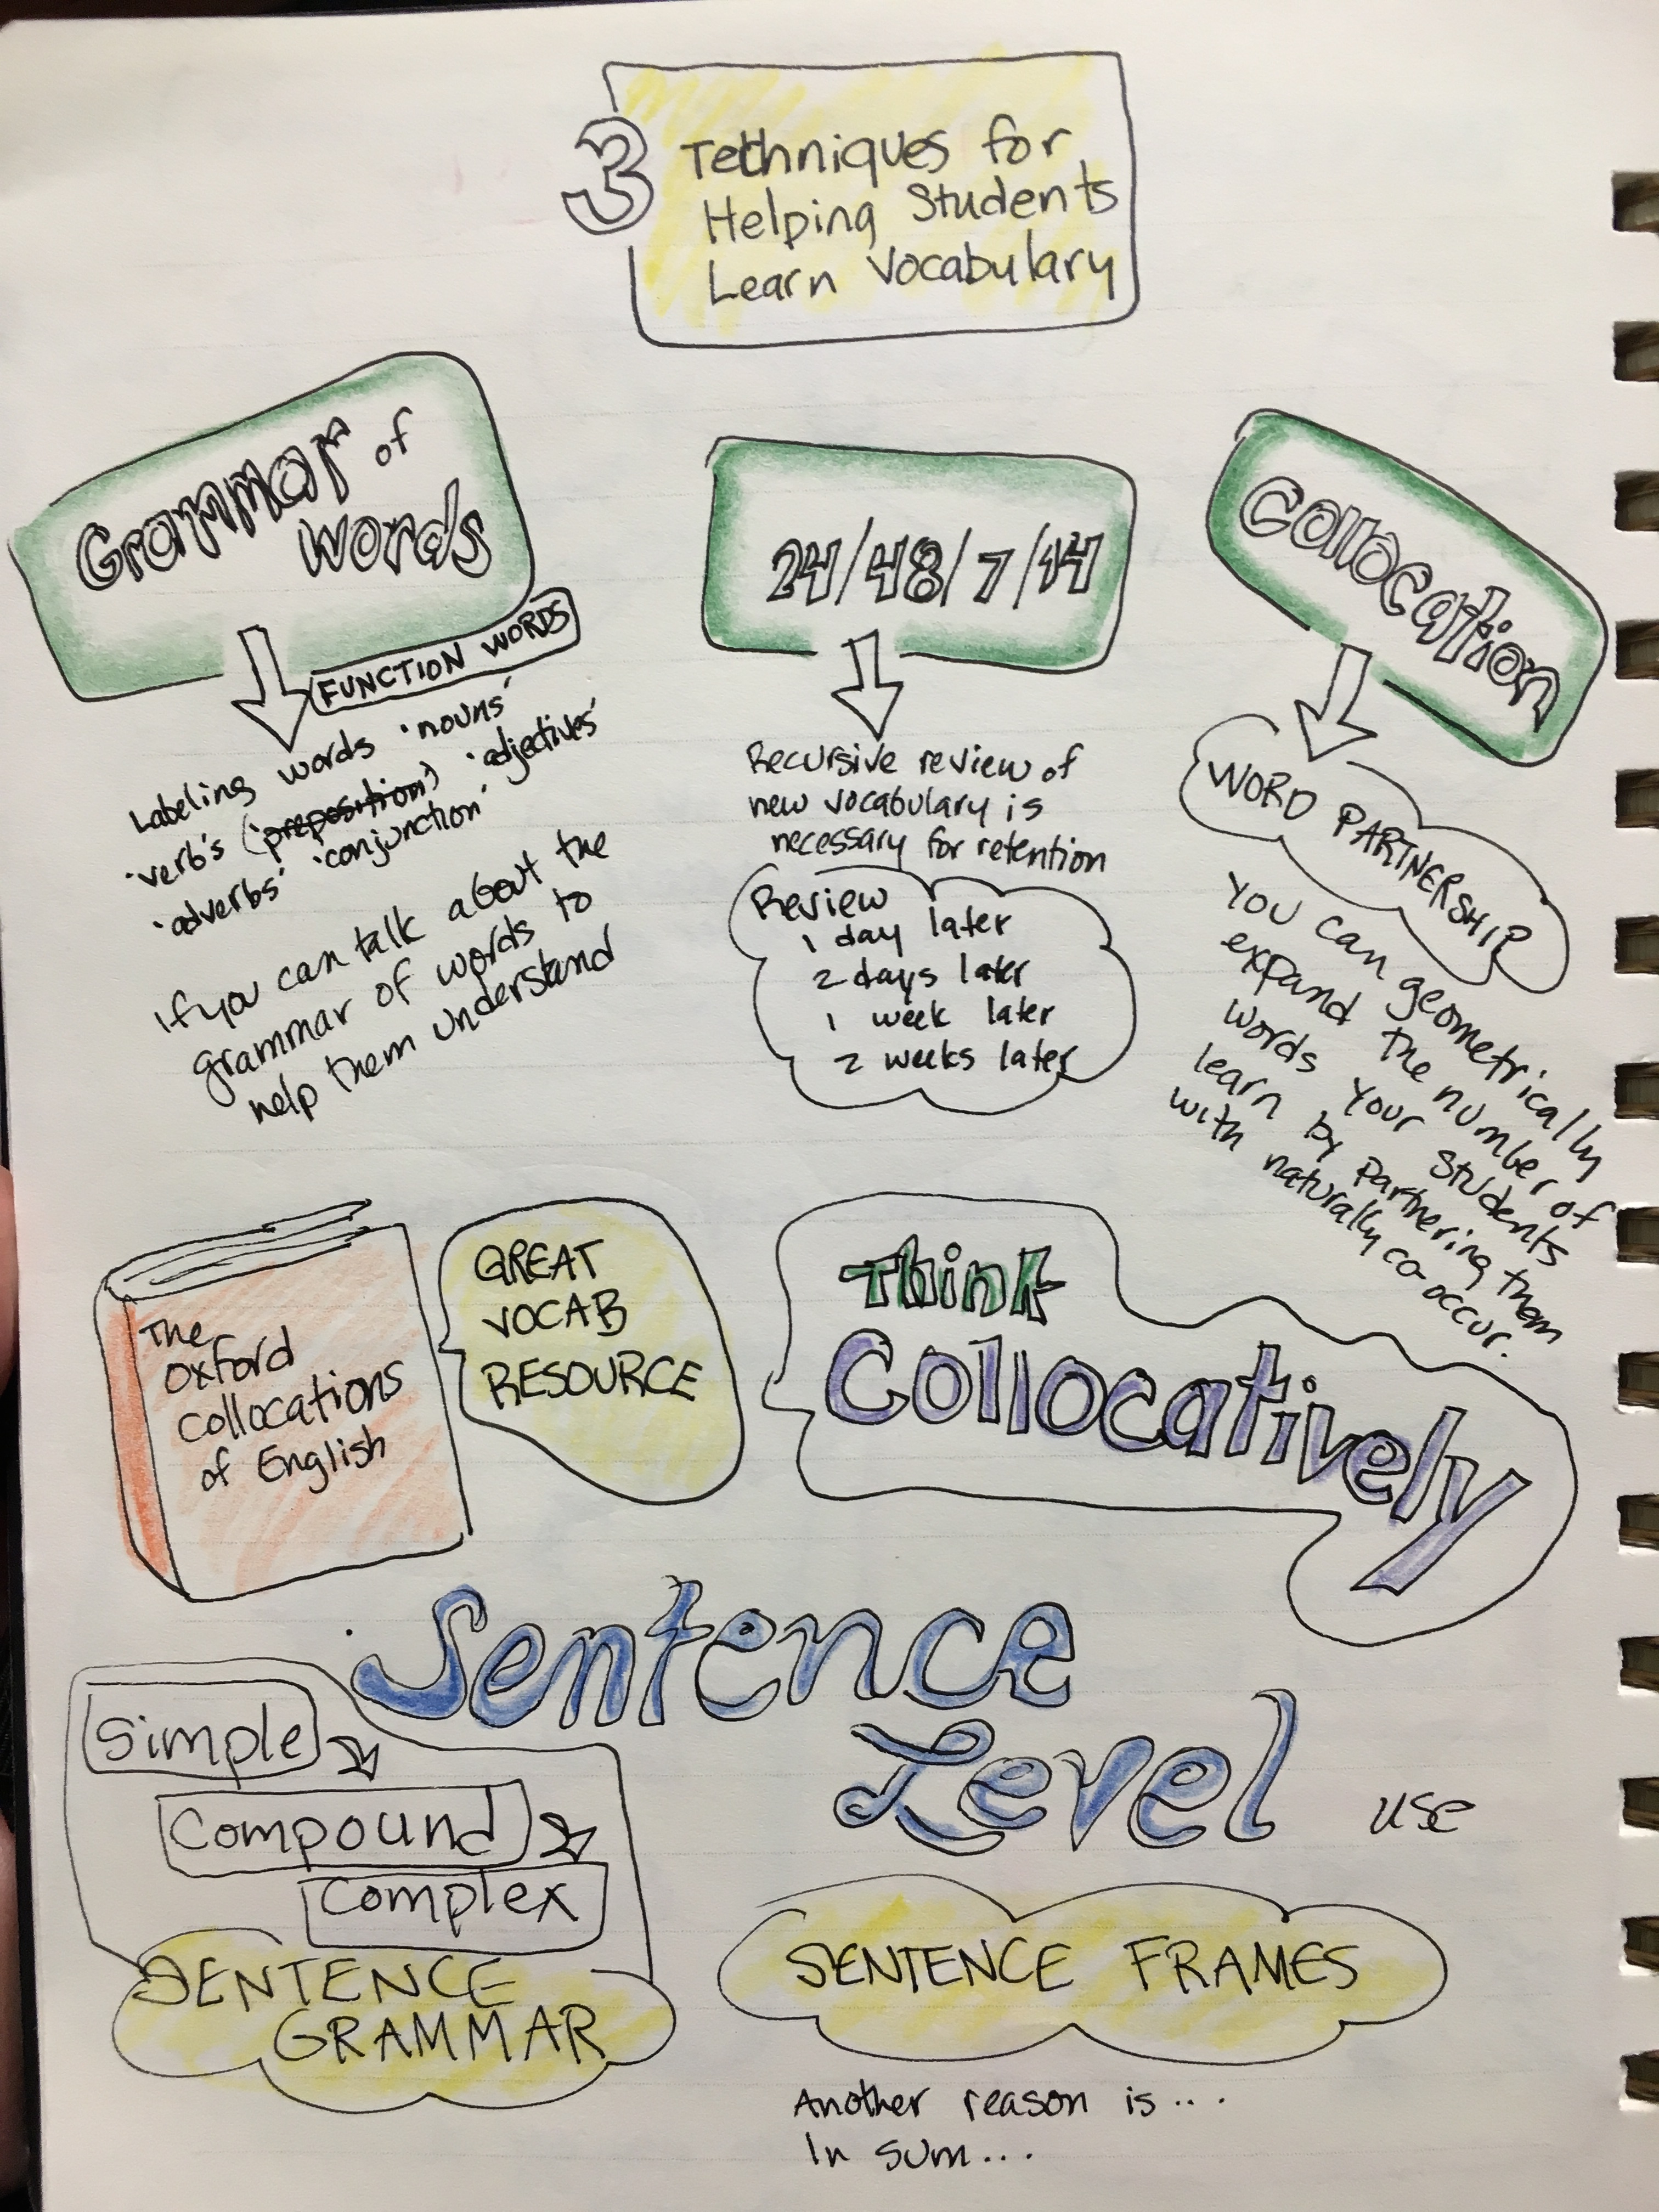 3 Techniques for
Helping Students
Learn Vocabulary
Grammar of
words
FUNCTION WORDS
Labeling words 'nouns'
'verb's ('preposition') 'adjectives'
'adverbs' 'conjunction'
If you can talk about the
grammar of words to
help them understand
24/48/7/14
Recursive review of
new vocabulary is
necessary for retention
Review
1 day later
2 days later
1 week later
2 weeks later
Collocation
WORD PARTNERSHIP
You can geometrically
expand the number of
words your students
learn by partnering them
with naturally co-occur.
The
Oxford
Collocations
of English
GREAT
VOCAB
RESOURCE
Think
Collocatively
Sentence
Level use
Simple
Compound
Complex
SENTENCE
GRAMMAR
SENTENCE FRAMES
Another reason is...
In sum...